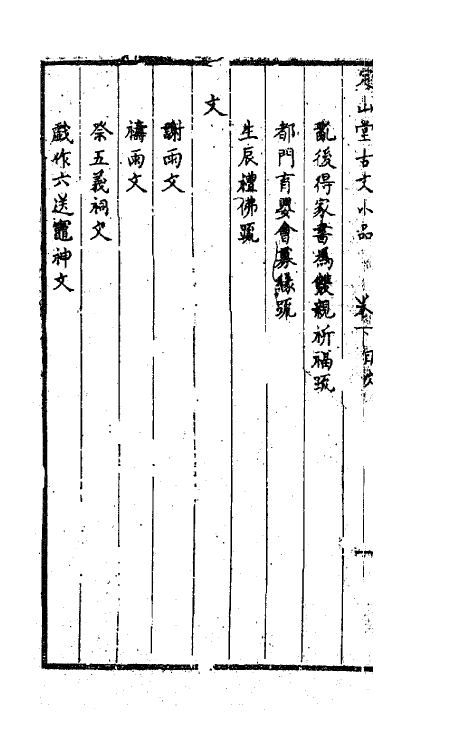 定山堂古文小品 卷下目次
亂後得家書爲雙親祈福疏
都門育嬰會募緣疏
生辰禮佛疏
文
謝雨文
禱雨文
祭五義祠文
戲作六送竈神文